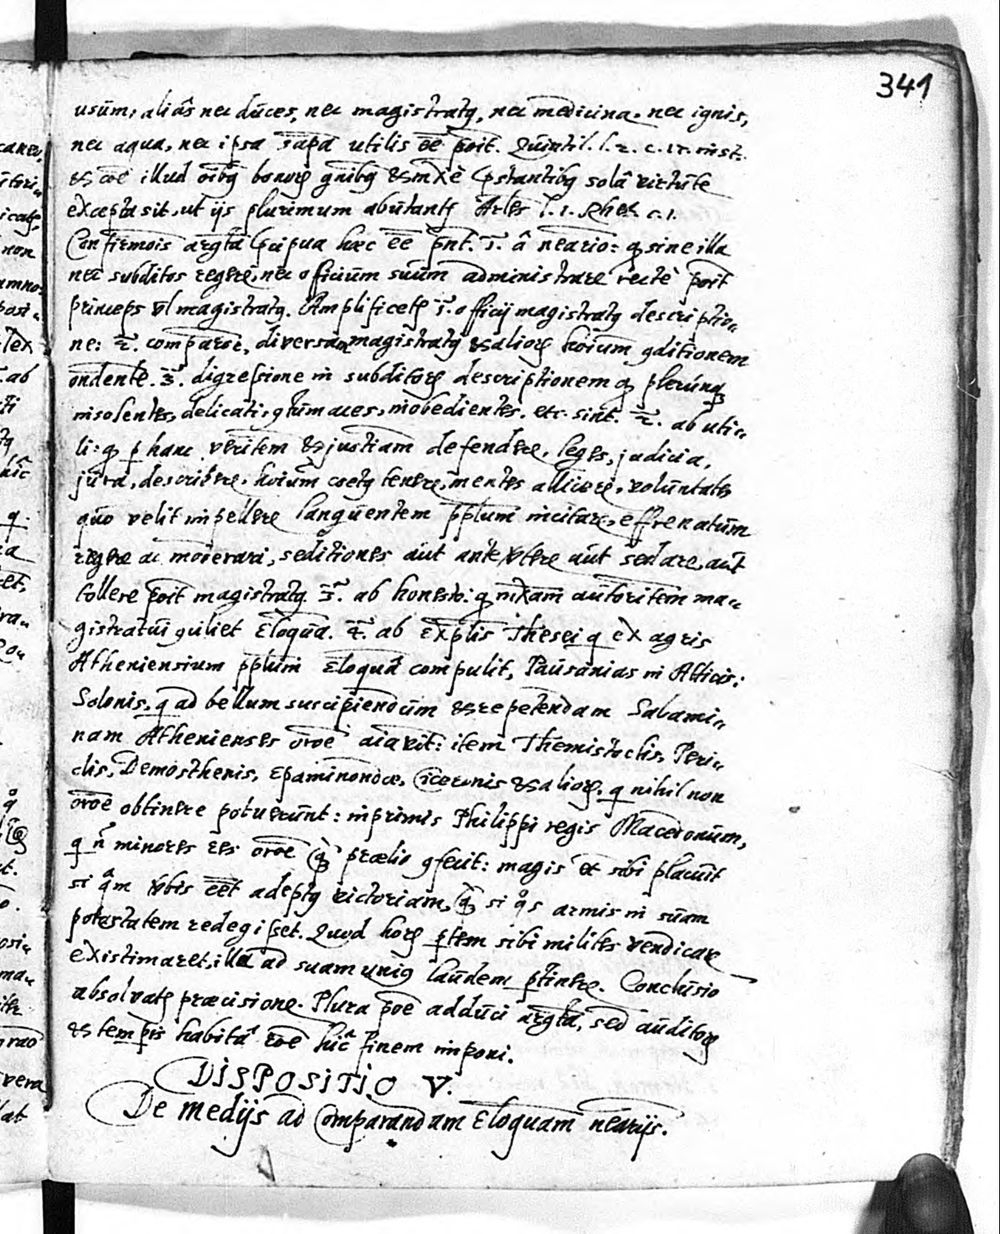 341
usum, aliâs nec duces, nec magistratꝯ, nec medicina, nec ignis,
nec aqua, nec ipsa utilis ēē pōit. Quintil. l. 2. c. inst.
& illud bonorꝫ solâ virtute
excepta sit, ut ijs plurimum l. 1. Rhet. c. 1.
hæc ēē pn̄t. 1. â neārio: qꝫ sine illa
nec subditos regere, nec officium suum administrare rectè pōit
princeps vl magistratꝯ. Amplificetꝭ 1. officij magistratꝯ descriptio„
ne: 2. diversam magistratꝯ & aliorꝫ hoīum 9ditionem
ondente. 3. digressione in subditorꝫ descriptionem qꝫ plerunqꝫ
insolentes, delicati, 9tumaces, inobedientes. etc. sint. 2. ab uti„
li: qꝫ p hanc veritēm & justiām defendere, leges, judicia,
jura, describere, hoīum coetꝯ tenere, mentes allicere, voluntates
quo velit impellere languentem pp̄lum incitare, effrenatum
regere ac moderari, seditiones aut antevertere aut sedare, aut
tollere pōit magistratꝯ 3. ab honesto: qꝫ autoritēm ma„
gistratui 9ciliet Eloquā. 4. ab Exp̄lis Thesei q ex agris
Atheniensium pp̄lum Eloquâ compulit, Pausanias in Atticis:
Solonis, q ad bellum suscipiendum & repetendam Salami„
nam Athenienses orōe aīavit: item Themistoclis, Peri„
clis, Demosthenis, Epaminondæ, Ciceronis & aliorꝫ, q nihil non
orōe obtinere potuerunt: inprimis Philippi regis Macedonum,
q n̄ minores res orōe qꝫ prælio 9fecit: magis et sibi placuit
si urbis adeptꝯ victoriam, qꝫ si armis in suam
potestatem redegisset. Quod horꝫ ptem sibi milites vendicare
existimaret, illa ad suam uniꝯ laudem ptinere. Conclusio
absolvatꝭ præcisione. Plura pōe adduci argtā, sed auditorꝫ
& tempis habitâ rōe hîc finem imponi.
DISPOSITIO V.
De medijs ad Comparandam Eloquām neārijs.